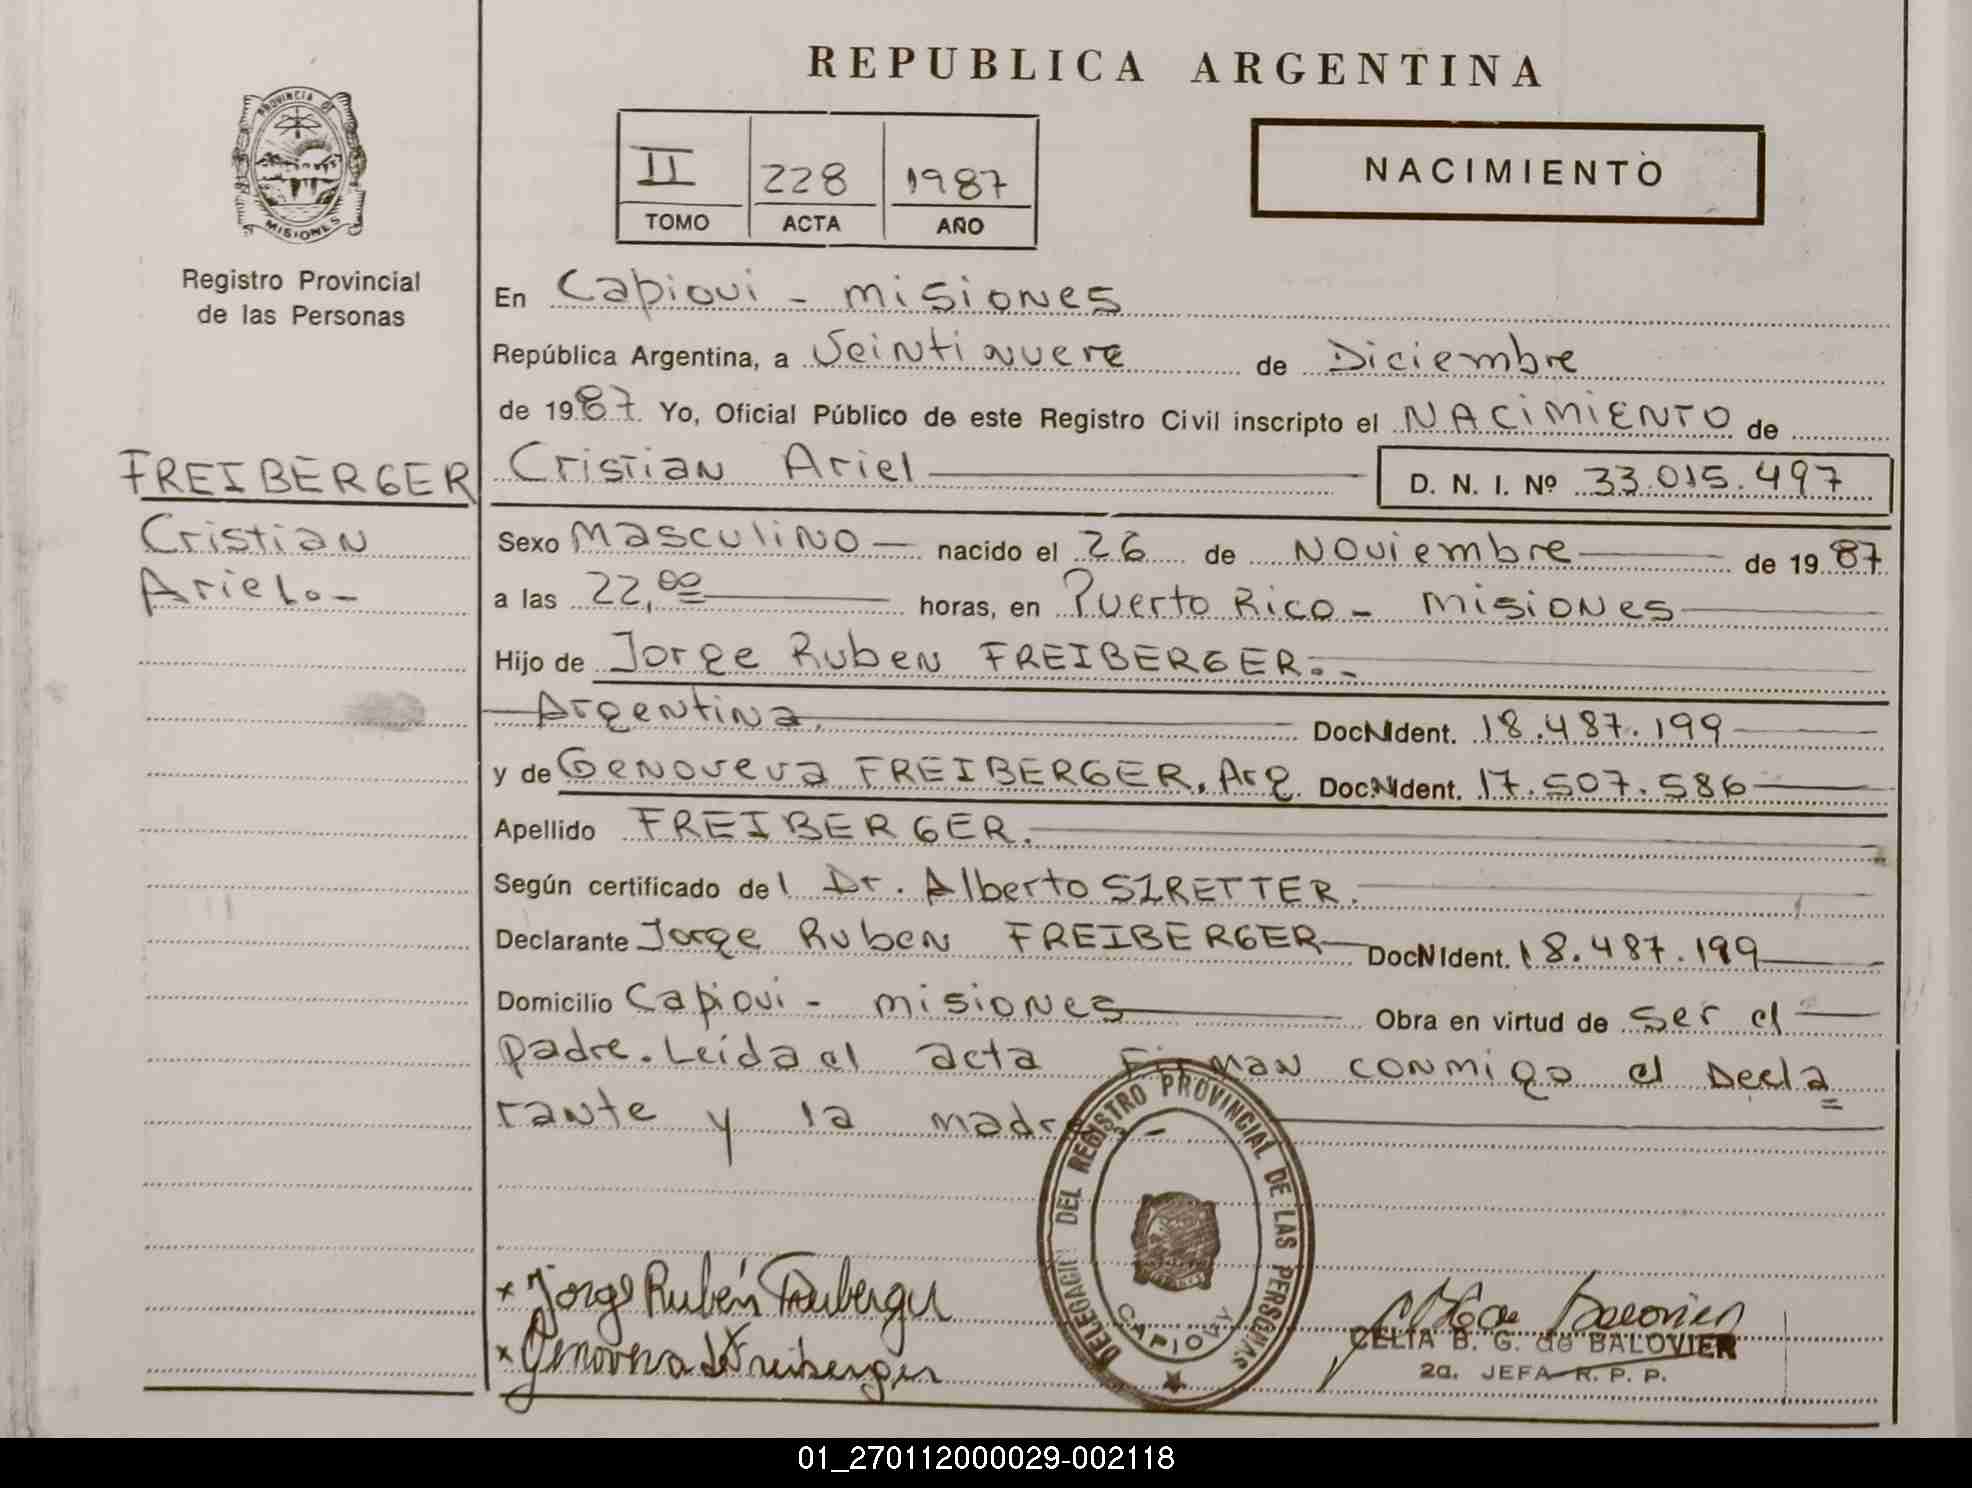 REPUBLICA ARGENTINA
PROVINCIA DE
MISIONES
II 228 1987
TOMO ACTA AÑO
NACIMIENTO
Registro Provincial
de las Personas
En Capiovi - misiones
República Argentina, a Veintinueve de Diciembre
de 1987 Yo, Oficial Público de este Registro Civil inscripto el NACIMIENTO de
FREIBERGER
Cristian
Ariel.-
Cristian Ariel D. N. I. Nº 33.015.497
Sexo masculino nacido el 26 de Noviembre de 1987
a las 22,00 horas, en Puerto Rico - misiones
Hijo de Jorge Ruben FREIBERGER.-
Argentina. Doc N Ident. 18.487.199
y de Genoveva FREIBERGER, Arg. Doc N Ident. 17.507.586
Apellido FREIBERGER.
Según certificado del Dr. Alberto SIRETTER.
Declarante Jorge Ruben FREIBERGER Doc N Ident. 18.487.199
Domicilio Capiovi - misiones Obra en virtud de ser el
padre. Leida el acta Firman conmigo el Decla
rante y la madre.-
DELEGACION DEL REGISTRO PROVINCIAL DE LAS PERSONAS
CAPIOVY
x Jorge Rubén Freiberger
x Genoveva de Freiberger
CELIA B. G. de BALOVIER
2a. JEFA R. P. P.
01_270112000029-002118